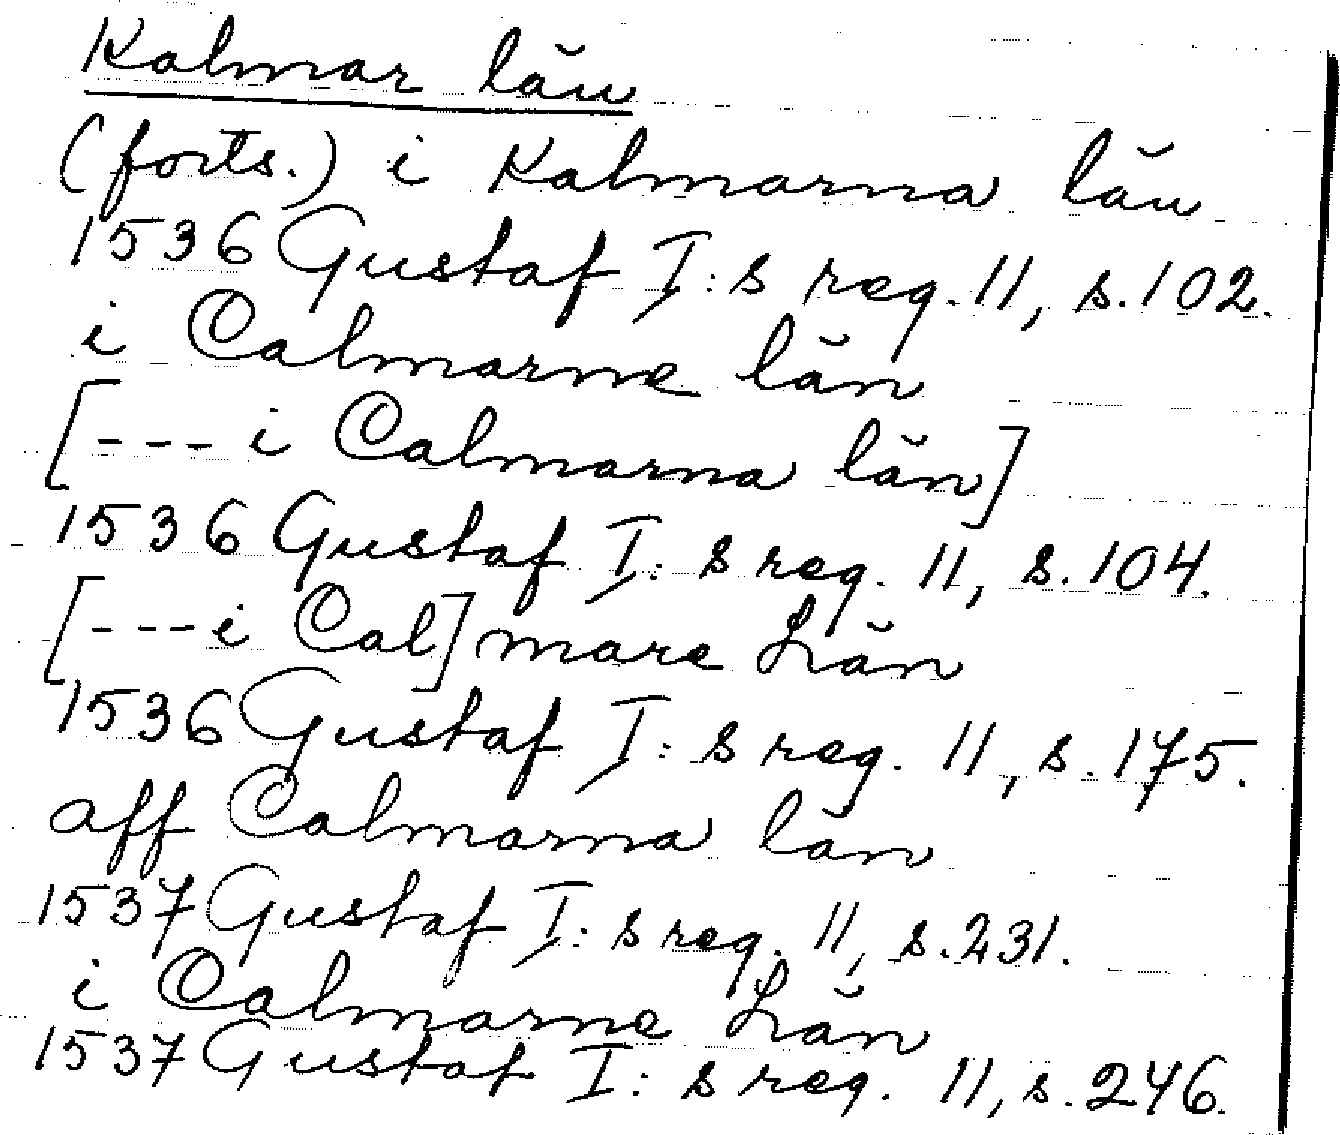 Kalmar län
(forts.) i Kalmarna län
1536 Gustaf I:s reg. 11, s. 102.
i Calmarne län
[--- i Calmarna län]
1536 Gustaf I:s reg. 11, s. 104.
[--- i Cal]mare Län
1536 Gustaf I:s reg. 11, s. 175.
aff Calmarna län
1537 Gustaf I:s reg. 11, s. 231.
i Calmarne Län
1537 Gustaf I:s reg. 11, s. 246.